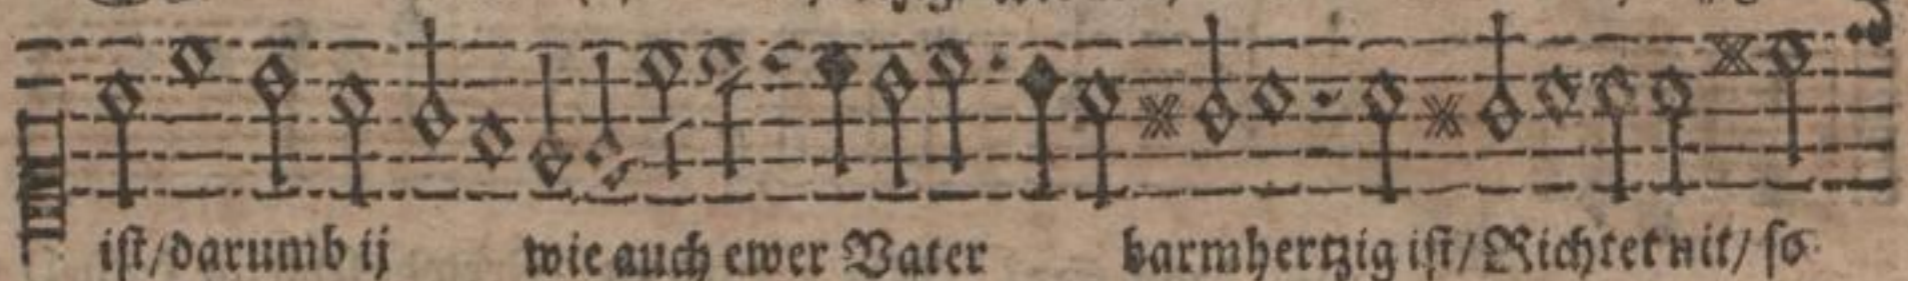 ist/darumb ij wie auch ewer Vater barmhertzig ist/Richtet nit/ so